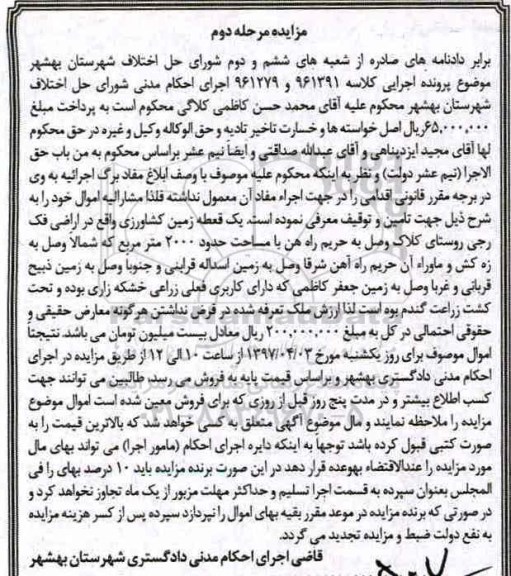 مزایده مرحله دوم
برابر دادنامه های صادره از شعبه های ششم و دوم شورای حل اختلاف شهرستان بهشهر
موضوع پرونده اجرایی کلاسه ۹۶۱۳۹۱ و ۹۶۱۲۷۹ اجرای احکام مدنی شورای حل اختلاف
شهرستان بهشهر محکوم علیه آقای محمد حسن کاظمی کلاگی محکوم است به پرداخت مبلغ
۶۵,۰۰۰,۰۰۰ریال اصل خواسته ها و خسارت تاخیر تادیه و حق الوکاله وکیل و غیره در حق محکوم
لها آقای مجید ایزدپناهی و آقای عبدالله صداقتی و ایضاً نیم عشر براساس محکوم به من باب حق
الاجرا (نیم عشر دولت) و نظر به اینکه محکوم علیه موصوف با وصف ابلاغ مفاد برگ اجرائیه به وی
در برجه مقرر قانونی اقدامی را در جهت اجراء مفاد آن معمول نداشته فلذا مشارالیه اموال خود را به
شرح ذیل جهت تأمین و توقیف معرفی نموده است. یک قطعه زمین کشاورزی واقع در اراضی فک
رجی روستای کلاک وصل به حریم راه هن با مساحت حدود ۲۰۰۰ متر مربع که شمالاً وصل به
زه کش و ماوراء آن حریم راه آهن شرقا وصل به زمین اسداله قراینی و جنوبا وصل به زمین ذبیح
قربانی و غربا وصل به زمین جعفر کاظمی که دارای کاربری فعلی زراعی خشکه زاری بوده و تحت
کشت زراعت گندم بوده است لذا ارزش ملک تعرفه شده در فرض نداشتن هرگونه معارض حقیقی و
حقوقی احتمالی در کل به مبلغ ۲۰۰,۰۰۰,۰۰۰ ریال معادل بیست میلیون تومان می باشد. نتیجتاً
اموال موصوف برای روز یکشنبه مورخ ۱۳۹۷/۰۴/۰۳ از ساعت ۱۰ الی ۱۲ از طریق مزایده در اجرای
احکام مدنی دادگستری بهشهر و براساس قیمت پایه به فروش می رسد. طالبین می توانند جهت
کسب اطلاع بیشتر و در مدت پنج روز قبل از روزی که برای فروش معین شده است اموال موضوع
مزایده را ملاحظه نمایند و مال موضوع آگهی متعلق به کسی خواهد شد که بالاترین قیمت را به
صورت کتبی قبول کرده باشد توجهاً به اینکه دایره اجرای احکام (مامور اجرا) می تواند بهای مال
مورد مزایده را عندالاقتضاء بهوعده قرار دهد در این صورت برنده مزایده باید ۱۰ درصد بهای را فی
المجلس بعنوان سپرده به قسمت اجرا تسلیم و حداکثر مهلت مزبور از یک ماه تجاوز نخواهد کرد و
در صورتی که برنده مزایده در موعد مقرر بقیه بهای اموال را نپردازد سپرده پس از کسر هزینه مزایده
به نفع دولت ضبط و مزایده تجدید می گردد.
قاضی اجرای احکام مدنی دادگستری شهرستان بهشهر